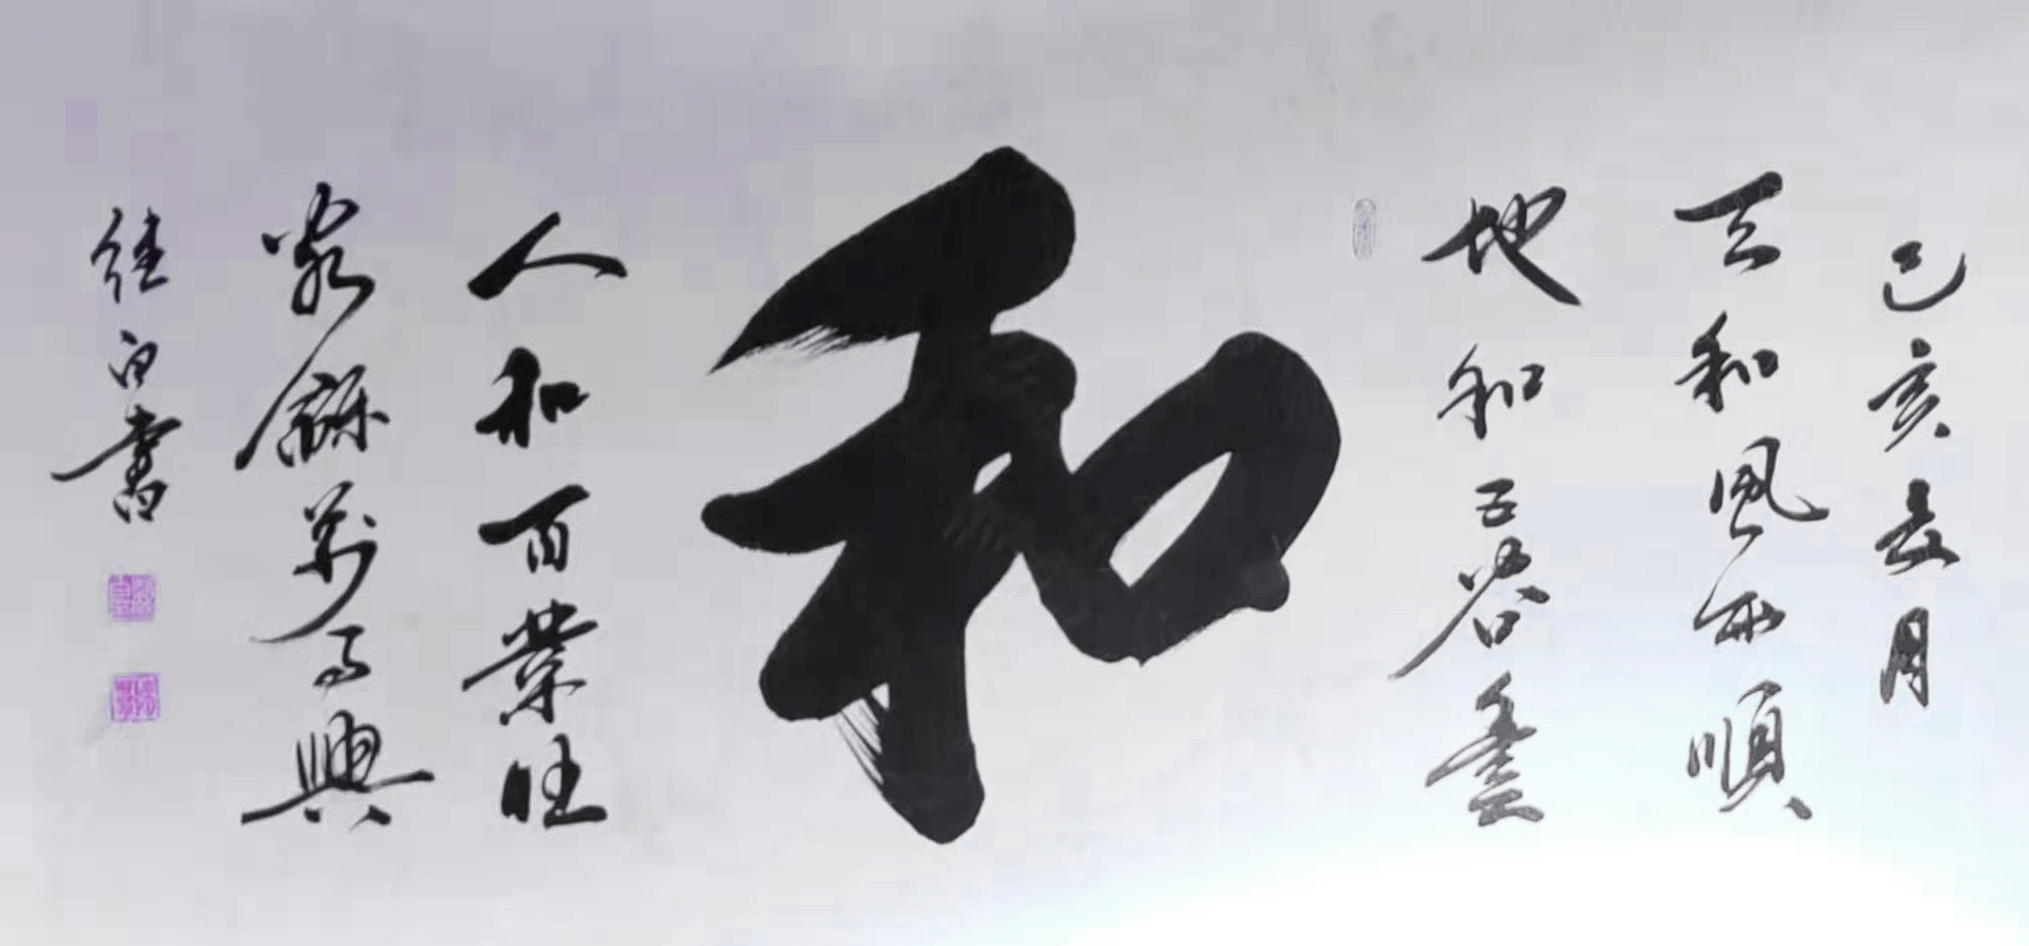 己亥月
天和風雨順
地和五谷豐
和
人和百業旺
家龢萬事興
白書